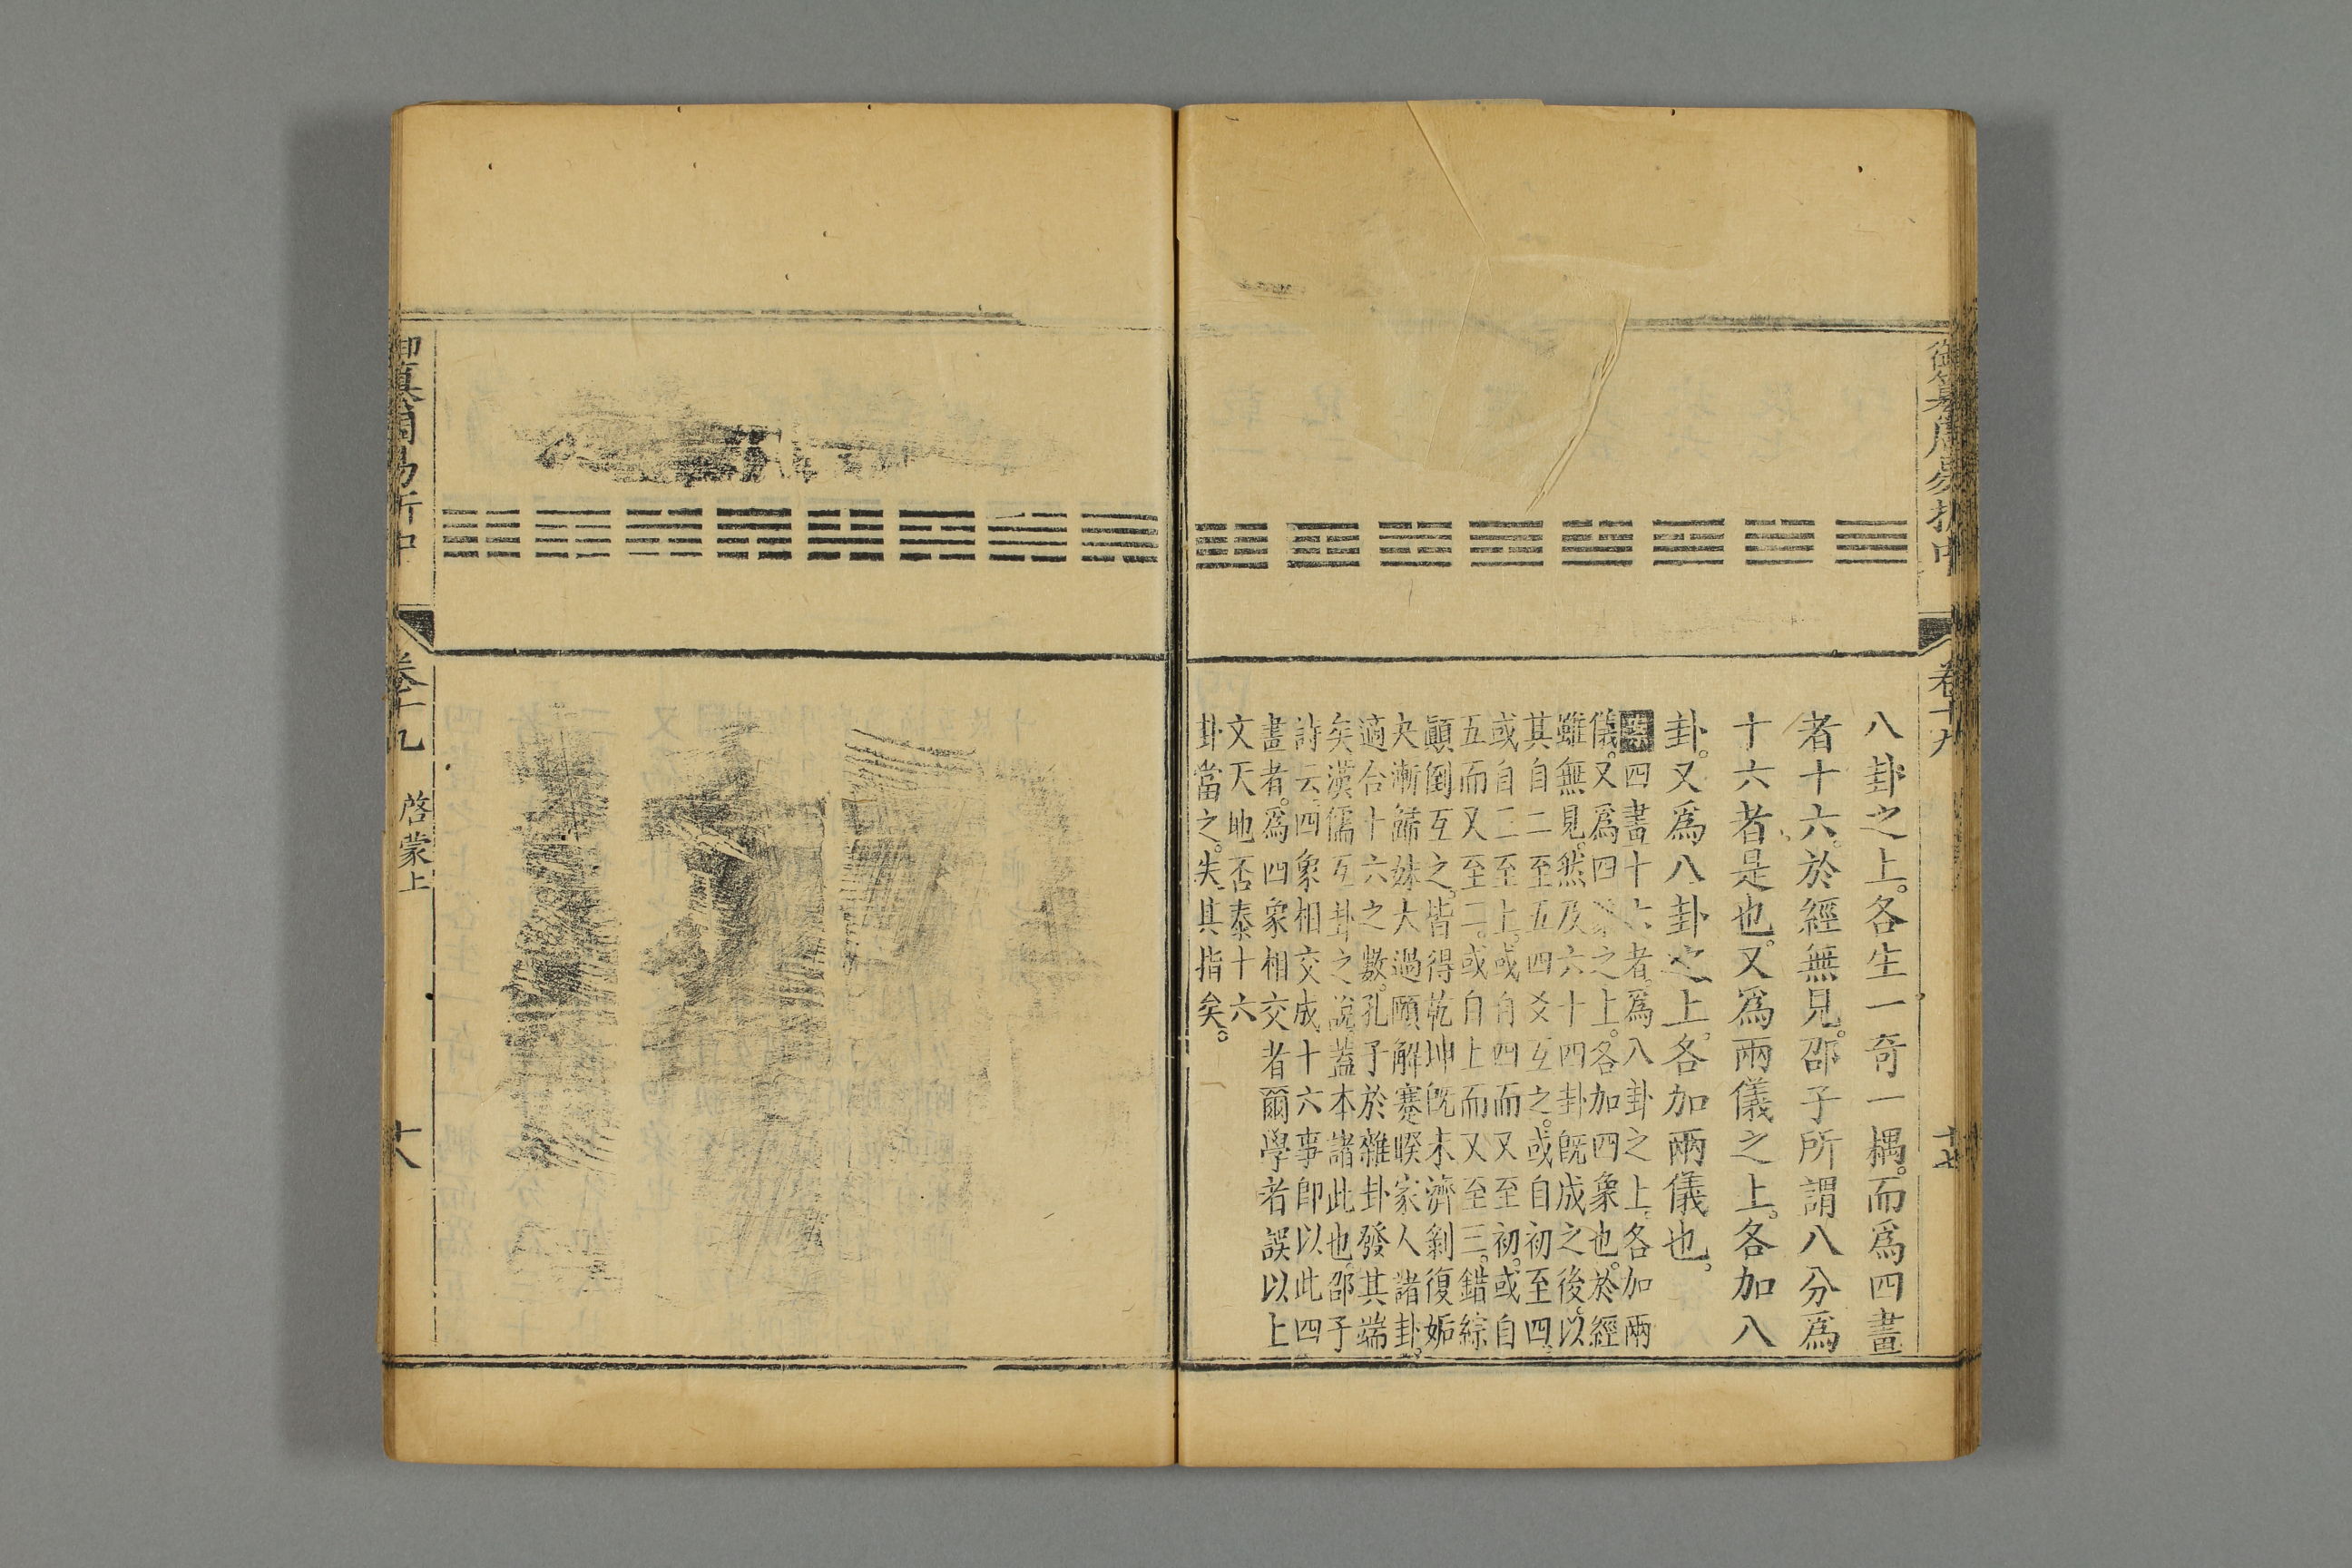 御纂周易折中
卷十九
十七
八卦之上。各生一奇一耦。而爲四畫
者十六。於經無見。邵子所謂八分爲
十六者是也。又爲兩儀之上。各加八
卦。又爲八卦之上。各加兩儀也。
四畫十六者。爲八卦之上。各加兩
儀。又爲四象之上。各加四象也。於經
雖無見。然及六十四卦旣成之後。以
其自二至五四爻互之。或自初至四。
或自二至上。或自四而又至初。或自
五而又至二。或自上而又至三。錯綜
顚倒互之。皆得乾坤旣未濟剝復姤
夬漸歸妹大過頤解蹇睽家人諸卦。
適合十六之數。孔子於雜卦發其端
矣漢儒互卦之說。蓋本諸此也。邵子
詩云。四象相交成十六事卽以此四
畫者。爲四象相交者爾學者誤以上
文天地否泰十六
卦當之。失其指矣。
御纂周易折中
卷十九
啓蒙上
十八